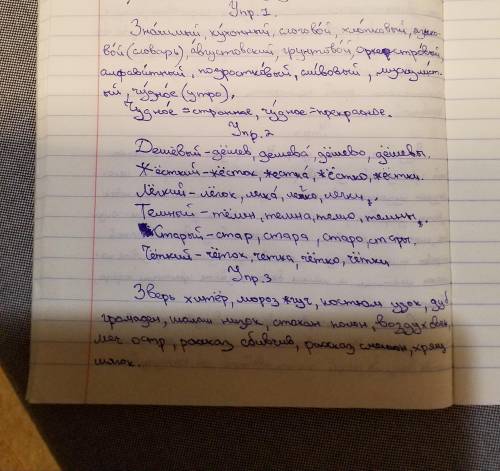 Упр.1
Зна́мный, ку́хонный, слогово́й, хло́пковый, языко-
во́й (словарь), а́вгустовский, грунтово́й, оркестро́вый,
алфави́тный, подростко́вый, сли́вовый,
ый, чу́дное (утро),
Чудно́е = странное, чу́дное = прекрасное.
Упр.2
Дешёвый - дёшев, дешева́, дёшево, дёшевы.
Жёсткий - жёсток, жестка́, жёстко, жёстки.
Лёгкий - лёгок, легка, легко, легки,
Темный - тёмен, темна, темно, темны,
Старый - стар, стара, старо, стары.
Чёткий - чёток, четка, чётко, чётки
Упр.3
Зверь хитёр, мороз жгуч, костюм узок, дуб
громаден, шалаш низок, стакан полон, воздух свеж,
меч остр, рассказ сбивчив, рассказ смешон, хрящ
мягок.